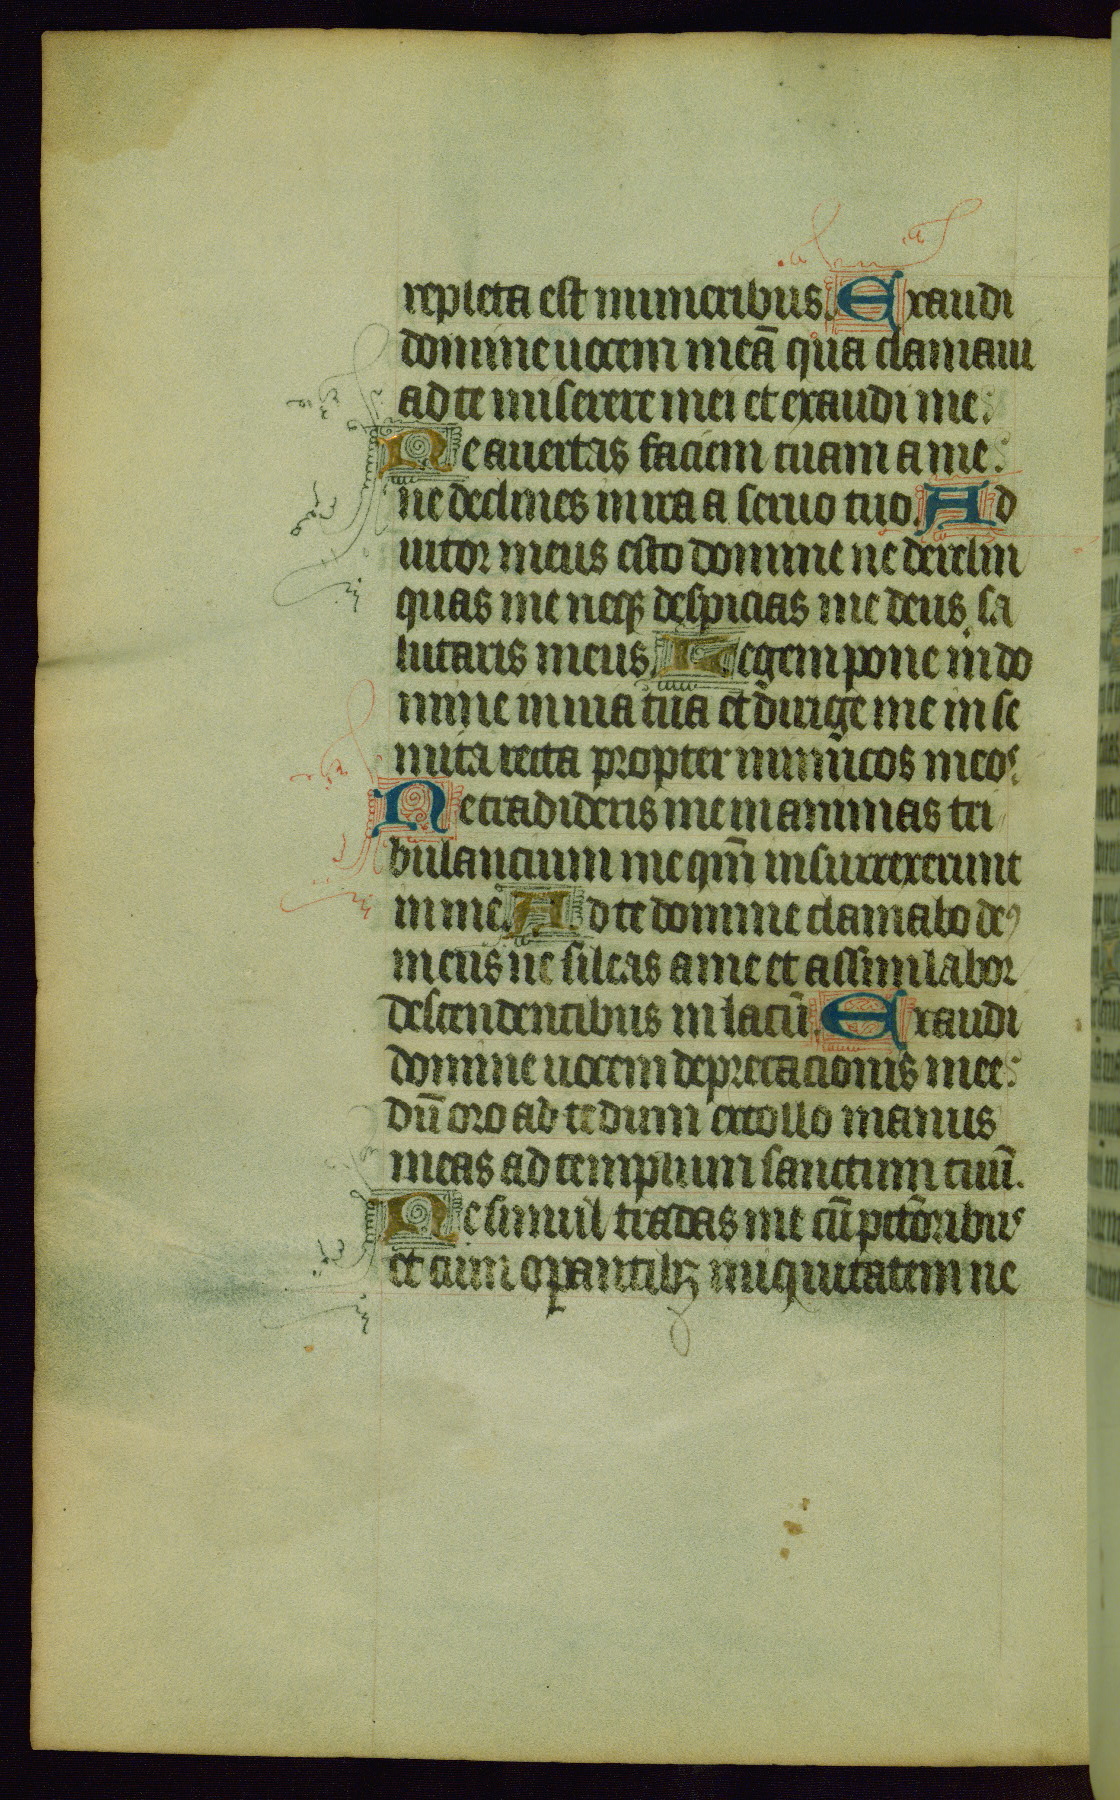 repleta est muneribus. Exaudi
domine uocem meā qua clamaui
ad te miserere mei et exaudi me.
Ne auertas faciem tuam a me.
ne declines in ira a seruo tuo. Ad
iutor meus esto domine ne derelin
quas me neqȝ despicias me deus sa
lutaris meus. Legem pone m̄ do
mine in uia tua et dirige me in se
mita recta propter inimicos meos.
Ne tradideris me in animas tri
bulancium me qm̄ insurrexerunt
in me. Ad te domine clamabo deꝰ
meus ne sileas a me et assimilabor
descendentibus in lacū. Exaudi
domine uocem deprecacionis mee:
dū oro ad te dum extollo manus
meas ad templum sanctum tuū.
Ne simul tradas me cū pctōribus
et cum opantibȝ iniquitatem ne